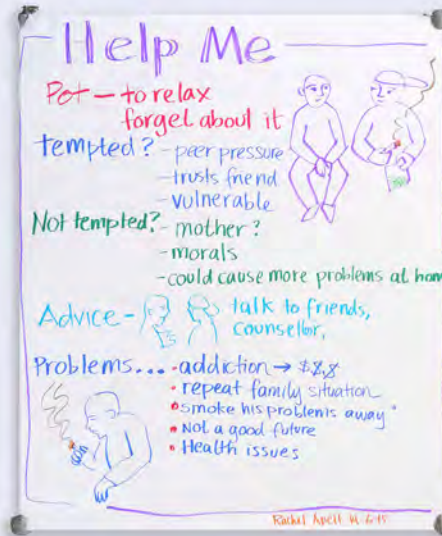 Help Me
Pot – to relax
forget about it
tempted? - peer pressure
- trusts friend
- vulnerable
Not tempted? - mother?
- morals
- could cause more problems at hom
Advice - talk to friends,
counsellor,
Problems... - addiction → $,$,$
• repeat family situation
• "smoke his problems away"
• Not a good future
• Health issues
Rachel